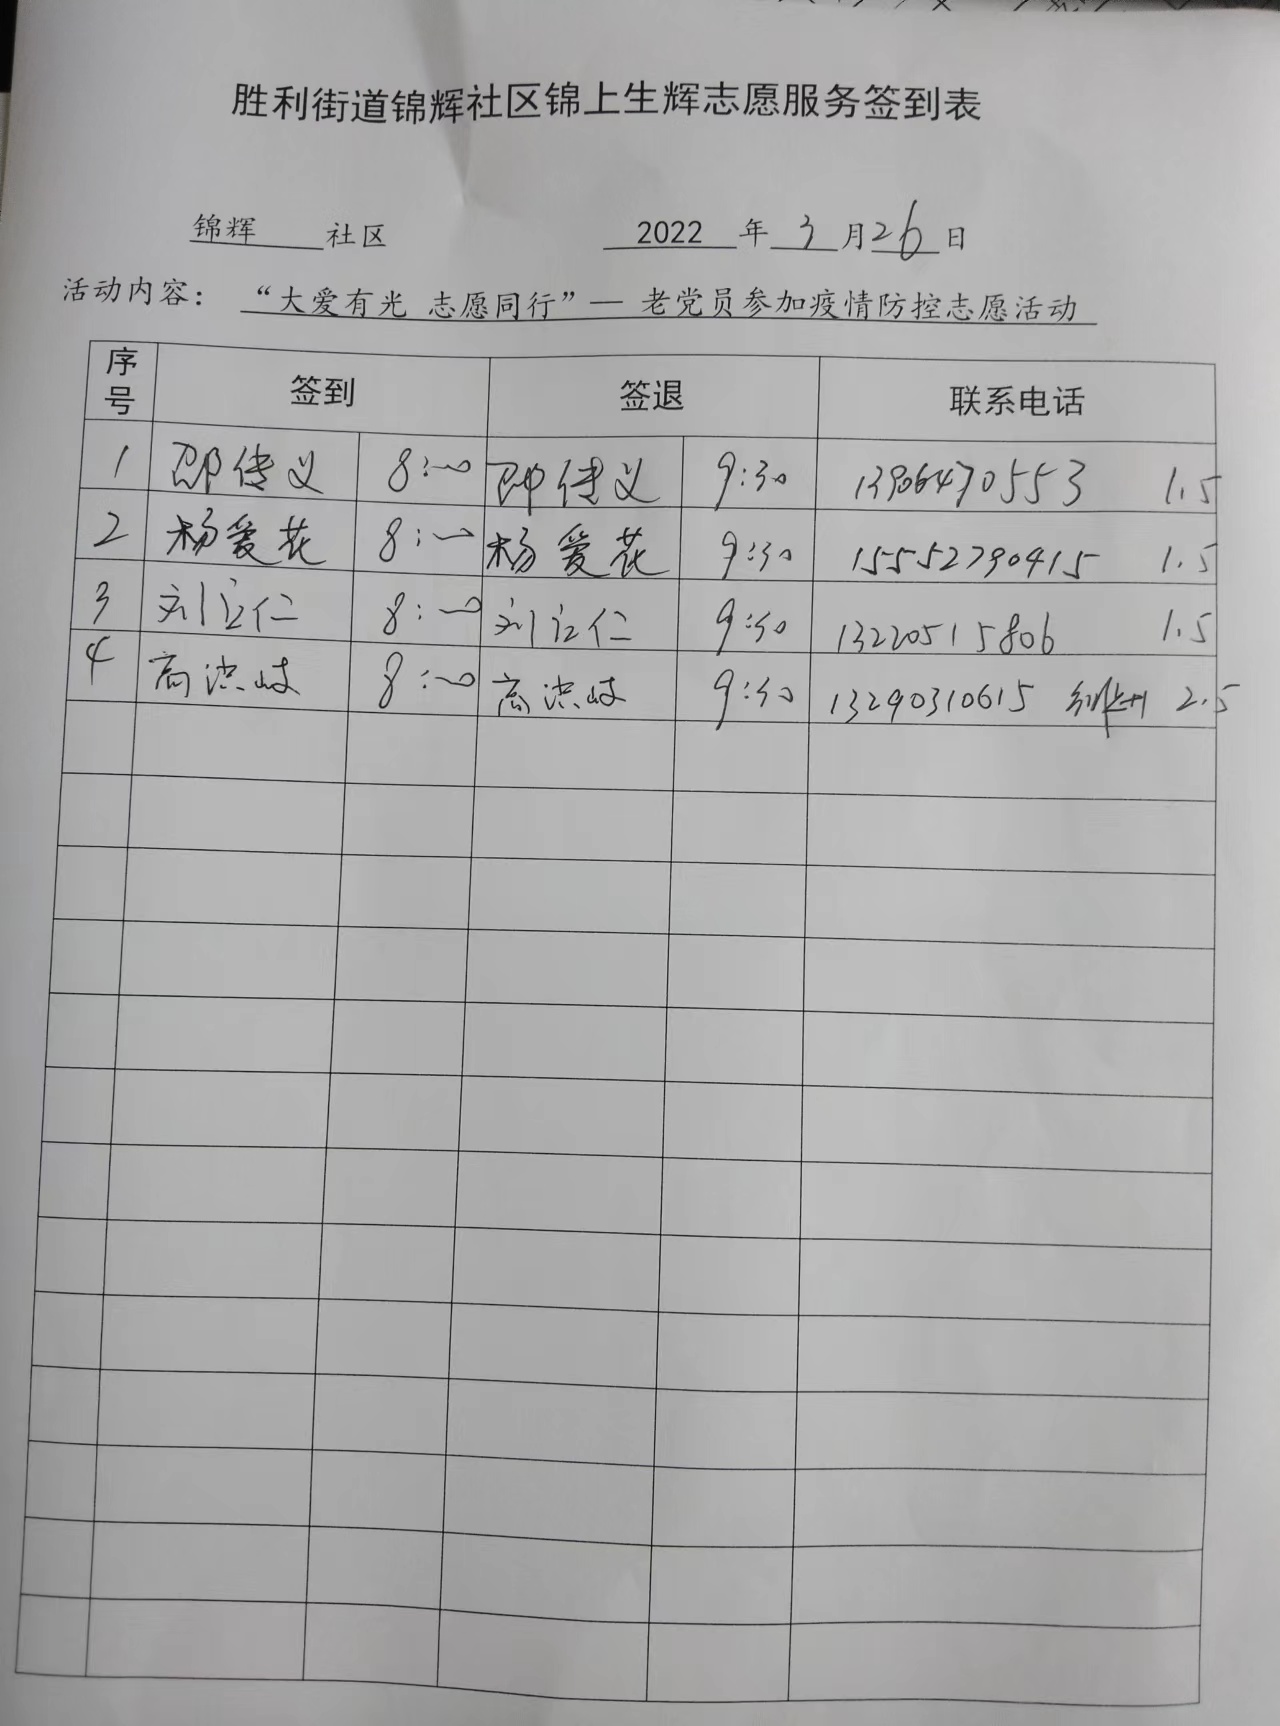 胜利街道锦辉社区锦上生辉志愿服务签到表
锦辉 社区 2022 年 3 月 26 日
活动内容： “大爱有光 志愿同行”— 老党员参加疫情防控志愿活动
序号 签到 签退 联系电话
1 邵传义 8:00 邵传义 9:30 13906470553 1.5
2 杨爱花 8:00 杨爱花 9:30 15552790415 1.5
3 刘立仁 8:00 刘立仁 9:30 13220515806 1.5
4 高洪岐 8:00 高洪岐 9:30 13290310615 2.5